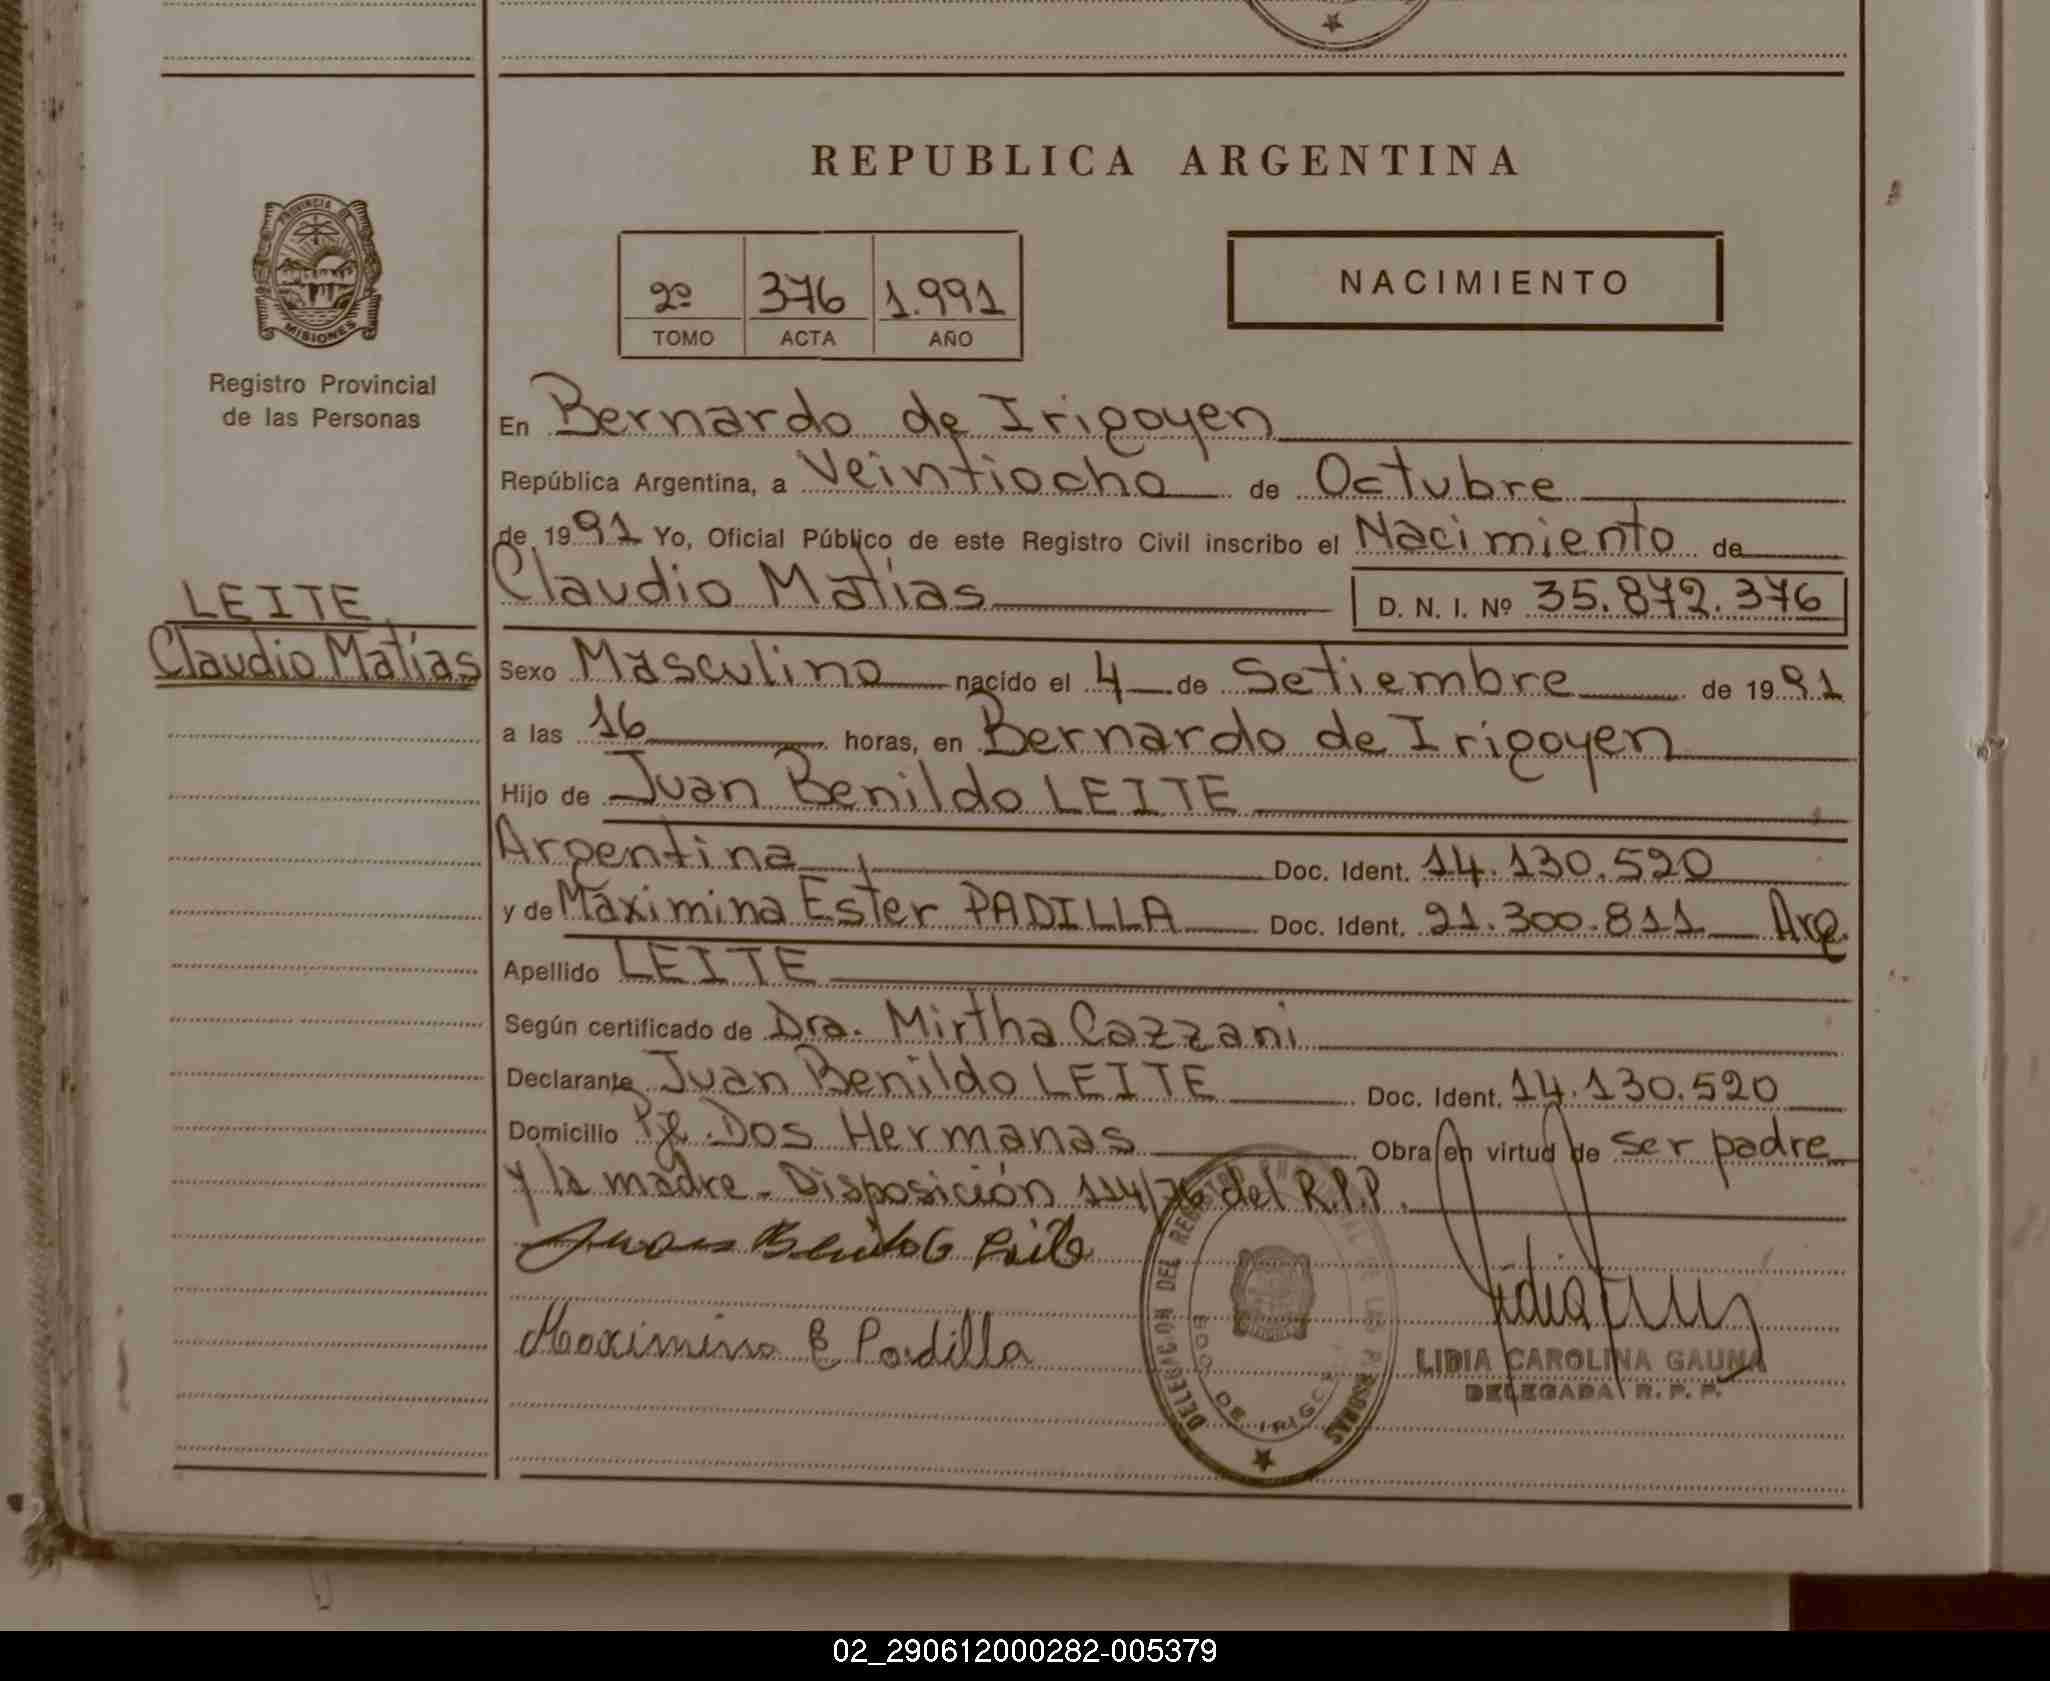 REPUBLICA ARGENTINA
PROVINCIA DE
MISIONES
Registro Provincial
de las Personas
2º 376 1.991
TOMO ACTA AÑO
NACIMIENTO
LEITE
Claudio Matías
En Bernardo de Irigoyen
República Argentina, a Veintiocho de Octubre
de 1991 Yo, Oficial Público de este Registro Civil inscribo el Nacimiento de
Claudio Matías D. N. I. Nº 35.872.376
Sexo Masculino nacido el 4 de Setiembre de 1991
a las 16 horas, en Bernardo de Irigoyen
Hijo de Juan Benildo LEITE
Argentina Doc. Ident. 14.130.520
y de Máximina Ester PADILLA Doc. Ident. 21.300.811 Arg.
Apellido LEITE
Según certificado de Dra. Mirtha Cazzani
Declarante Juan Benildo LEITE Doc. Ident. 14.130.520
Domicilio Pje. Dos Hermanas Obra en virtud de ser padre
y la madre - Disposición 114/76 del R.P.P.
Maximina E Padilla
DELEGACION DEL REGISTRO PROVINCIAL DE LAS PERSONAS
BDO. DE IRIGOYEN
LIDIA CAROLINA GAUNA
DELEGADA R. P. P.
02_290612000282-005379